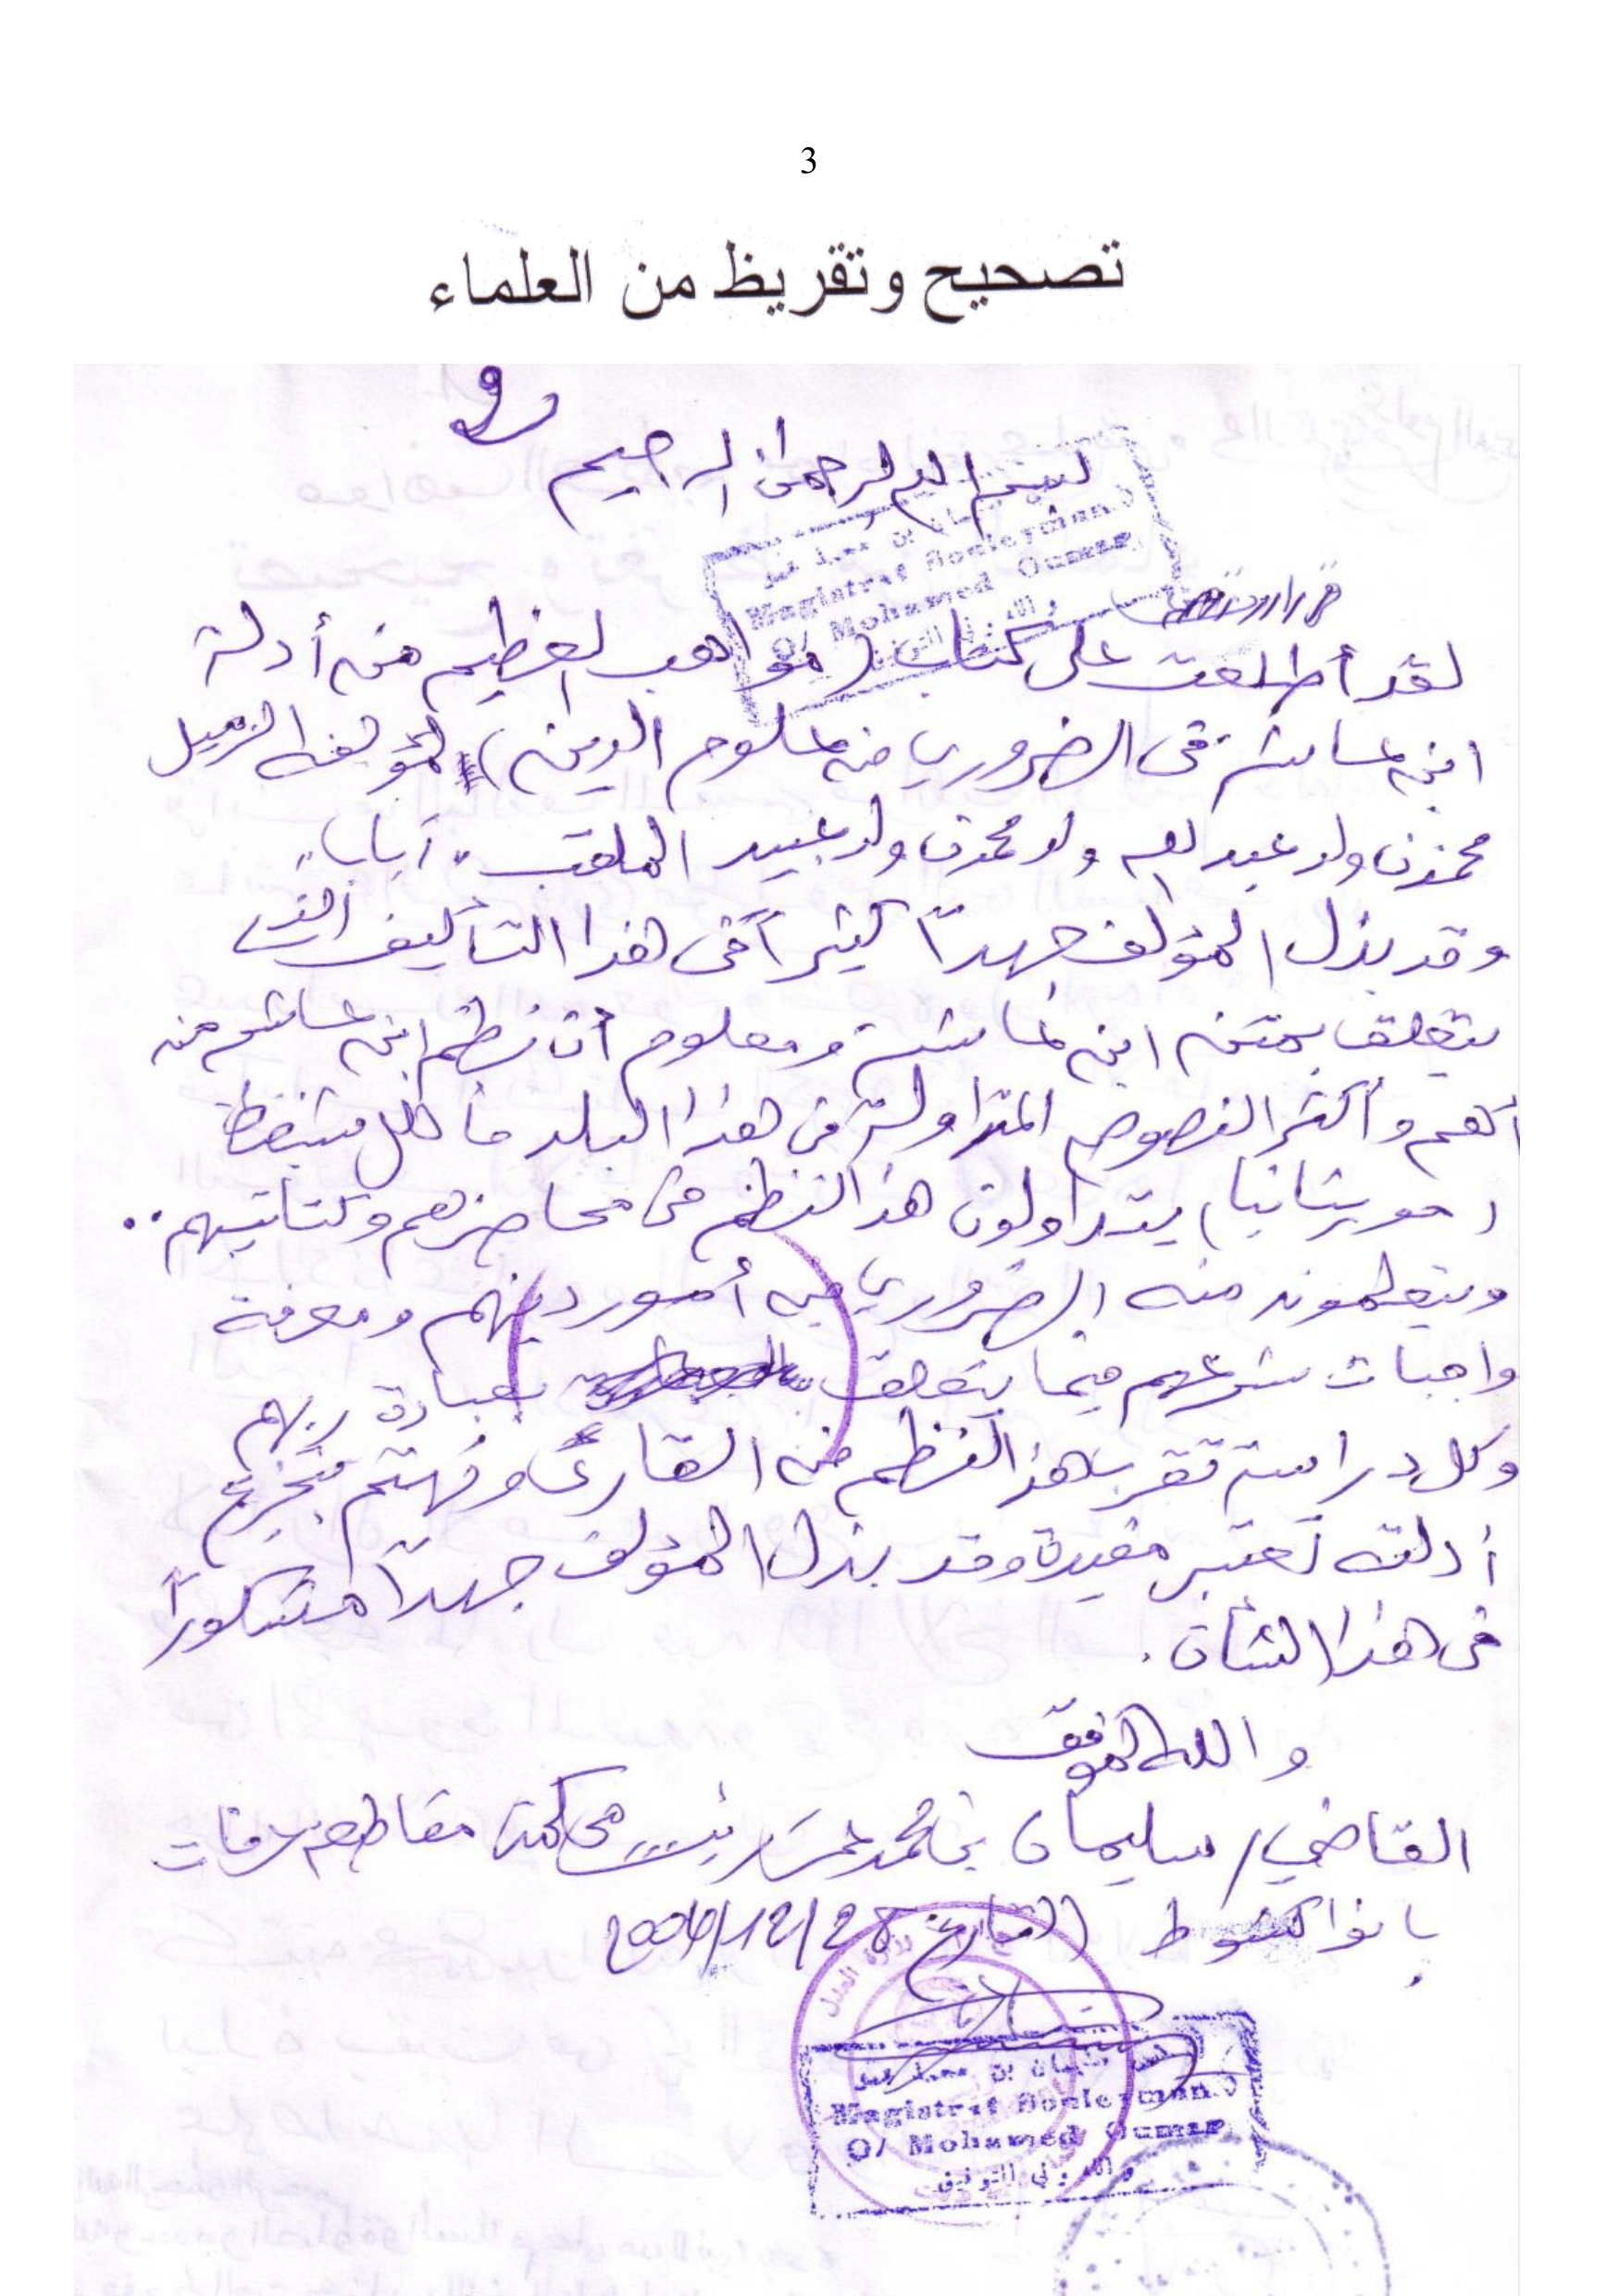 3
تصحيح وتقريظ من العلماء
بسم الله الرحمن الرحيم
لقد أطلعت على كتاب (مواهب العظيم من أدلة
ابن عاشر في الضروري من علوم الدين) لمؤلفه الزميل
محمذن ولد عبد الله ولد محمذن ولد عبيد الملقب "أباب"
وقد بذل المؤلف جهدًا كثيرًا في هذا التأليف الذي
يتعلق بمتن ابن عاشر ومعلوم أن نظم ابن عاشر من
أهم وأكثر النصوص المتداولة في هذا البلد
(موريتانيا) يتداولون هذا النظم في محاضرهم وكتاتيبهم..
ويتعلمون منه الضروري من أمور دينهم ومعرفة
واجبات شرعهم فيما يتعلق بعبادة ربهم
وكل دراسة تقرب هذا النظم من القارئ وتهتم بتخريج
أدلته تعتبر مفيدة وقد بذل المؤلف جهدًا مشكورًا
في هذا الشأن.
والله الموفق
القاضي/ سليمان بن محمد عمر رئيس محكمة مقاطعة عرفات
بانواكشوط التاريخ 28/12/2004
Magistrat Souleymane
O/ Mohamed Oumar
والله ولي التوفيق